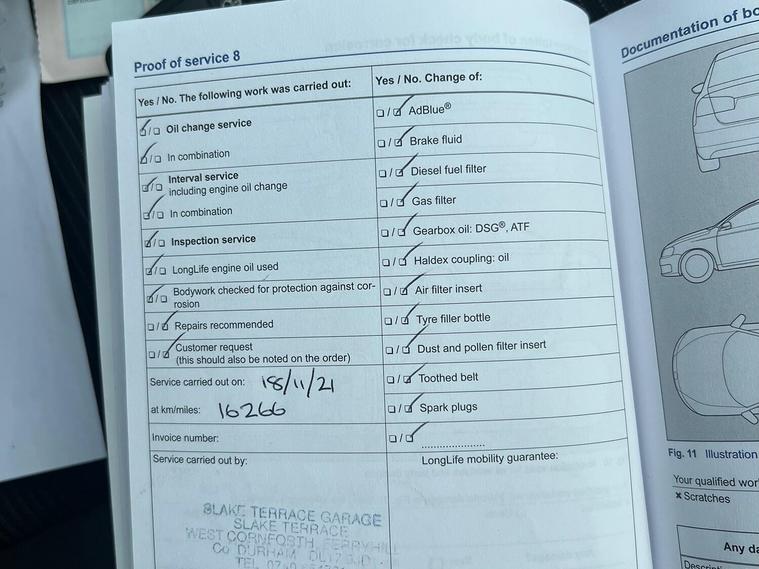 Proof of service 8
Yes / No. The following work was carried out:
Oil change service
In combination
Interval service
including engine oil change
In combination
Inspection service
LongLife engine oil used
Bodywork checked for protection against cor-
rosion
Repairs recommended
Customer request
(this should also be noted on the order)
Service carried out on: 18/11/21
at km/miles: 16266
Invoice number:
Service carried out by:
SLAKE TERRACE GARAGE
SLAKE TERRACE
WEST CORNFORTH, FERRYHILL
Co DURHAM
TEL
Yes / No. Change of:
AdBlue®
Brake fluid
Diesel fuel filter
Gas filter
Gearbox oil: DSG®, ATF
Haldex coupling: oil
Air filter insert
Tyre filler bottle
Dust and pollen filter insert
Toothed belt
Spark plugs
LongLife mobility guarantee:
Documentation of bo
Fig. 11 Illustration
Your qualified wor
× Scratches
Any da
Descript